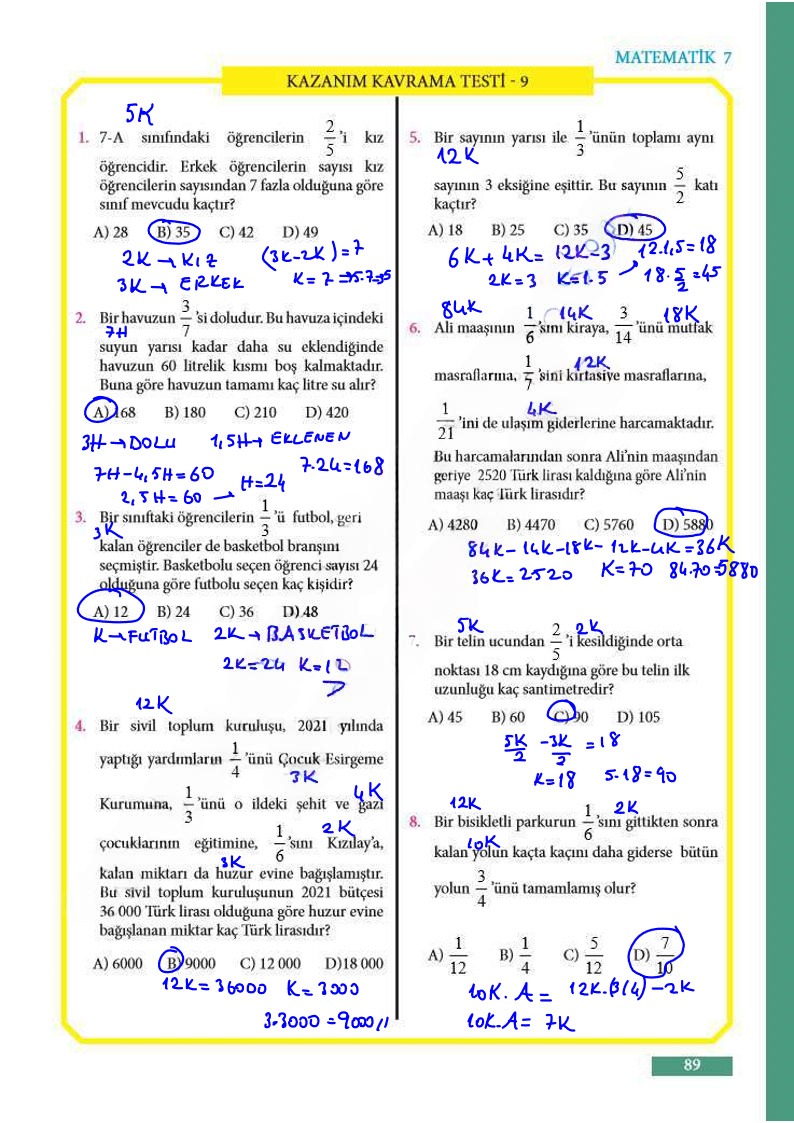 MATEMATİK 7
KAZANIM KAVRAMA TESTİ - 9
5K
1. 7-A sınıfındaki öğrencilerin 2/5 'i kız
öğrencidir. Erkek öğrencilerin sayısı kız
öğrencilerin sayısından 7 fazla olduğuna göre
sınıf mevcudu kaçtır?
A) 28 B) 35 C) 42 D) 49
2K → KIZ (3K-2K)=7
3K → ERKEK K=7 → 5.7=35
2. Bir havuzun 3/7 'si doludur. Bu havuza içindeki
7H
suyun yarısı kadar daha su eklendiğinde
havuzun 60 litrelik kısmı boş kalmaktadır.
Buna göre havuzun tamamı kaç litre su alır?
A) 168 B) 180 C) 210 D) 420
3H → DOLU 1,5H → EKLENEN
7H-4,5H=60 7.24=168
2,5H=60 → H=24
3. Bir sınıftaki öğrencilerin 1/3 'ü futbol, geri
3K
kalan öğrenciler de basketbol branşını
seçmiştir. Basketbolu seçen öğrenci sayısı 24
olduğuna göre futbolu seçen kaç kişidir?
A) 12 B) 24 C) 36 D) 48
K → FUTBOL 2K → BASKETBOL
2K=24 K=12
12K
4. Bir sivil toplum kuruluşu, 2021 yılında
yaptığı yardımların 1/4 'ünü Çocuk Esirgeme
3K
Kurumuna, 1/3 'ünü o ildeki şehit ve gazi
4K
çocuklarının eğitimine, 1/6 'sını Kızılay'a,
2K
3K
kalan miktarı da huzur evine bağışlamıştır.
Bu sivil toplum kuruluşunun 2021 bütçesi
36 000 Türk lirası olduğuna göre huzur evine
bağışlanan miktar kaç Türk lirasıdır?
A) 6000 B) 9000 C) 12 000 D)18 000
12K=36000 K=3000
3.3000=9000//
5. Bir sayının yarısı ile 1/3 'ünün toplamı aynı
12K
sayının 3 eksiğine eşittir. Bu sayının 5/2 katı
kaçtır?
A) 18 B) 25 C) 35 D) 45
6K+4K= 12K-3 12.1,5=18
2K=3 K=1.5 18.5/2=45
84K 14K 18K
6. Ali maaşının 1/6 'sını kiraya, 3/14 'ünü mutfak
12K
masraflarına, 1/7 'sini kırtasiye masraflarına,
4K
1/21 'ini de ulaşım giderlerine harcamaktadır.
Bu harcamalarından sonra Ali'nin maaşından
geriye 2520 Türk lirası kaldığına göre Ali'nin
maaşı kaç Türk lirasıdır?
A) 4280 B) 4470 C) 5760 D) 5880
84K-14K-18K-12K-4K=36K
36K=2520 K=70 84.70=5880
5K 2K
7. Bir telin ucundan 2/5 'i kesildiğinde orta
noktası 18 cm kaydığına göre bu telin ilk
uzunluğu kaç santimetredir?
A) 45 B) 60 C) 90 D) 105
5K/2 - 3K/2 = 18
K=18 5.18=90
12K 2K
8. Bir bisikletli parkurun 1/6 'sını gittikten sonra
10K
kalan yolun kaçta kaçını daha giderse bütün
yolun 3/4 'ünü tamamlamış olur?
A) 1/12 B) 1/4 C) 5/12 D) 7/10
10K.A = 12K.(3/4)-2K
10K.A= 7K
89